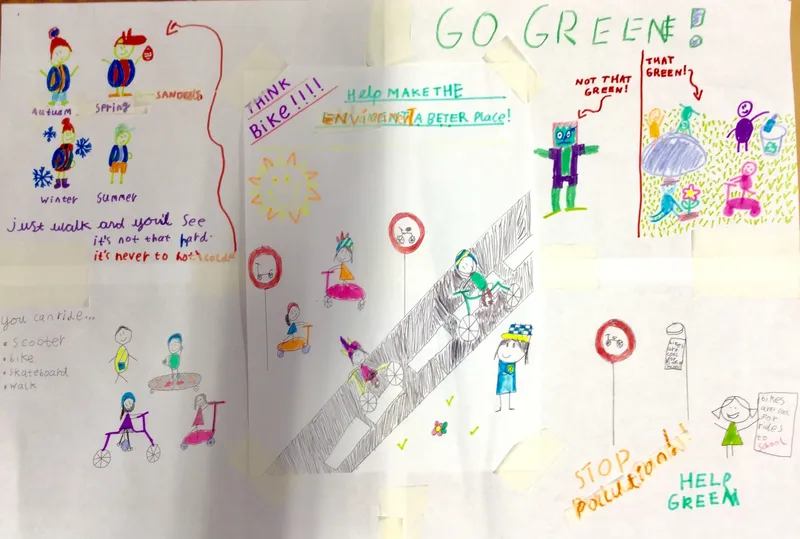 GO GREEN!
NOT THAT
GREEN!
THAT
GREEN!
THINK
Bike!!!!
Help MAKE THE
A BETER Place!
Autuam
Spring
SANDELS
Winter
Summer
just walk and you'll see
it's not that hard.
it's never to hot/cold
you can ride...
• scooter
• bike
• skateboard
• walk
bikes
are
cool
for
bikes
are cool
for
rides
to
school
STOP
Pollution!!
HELP
GREEN